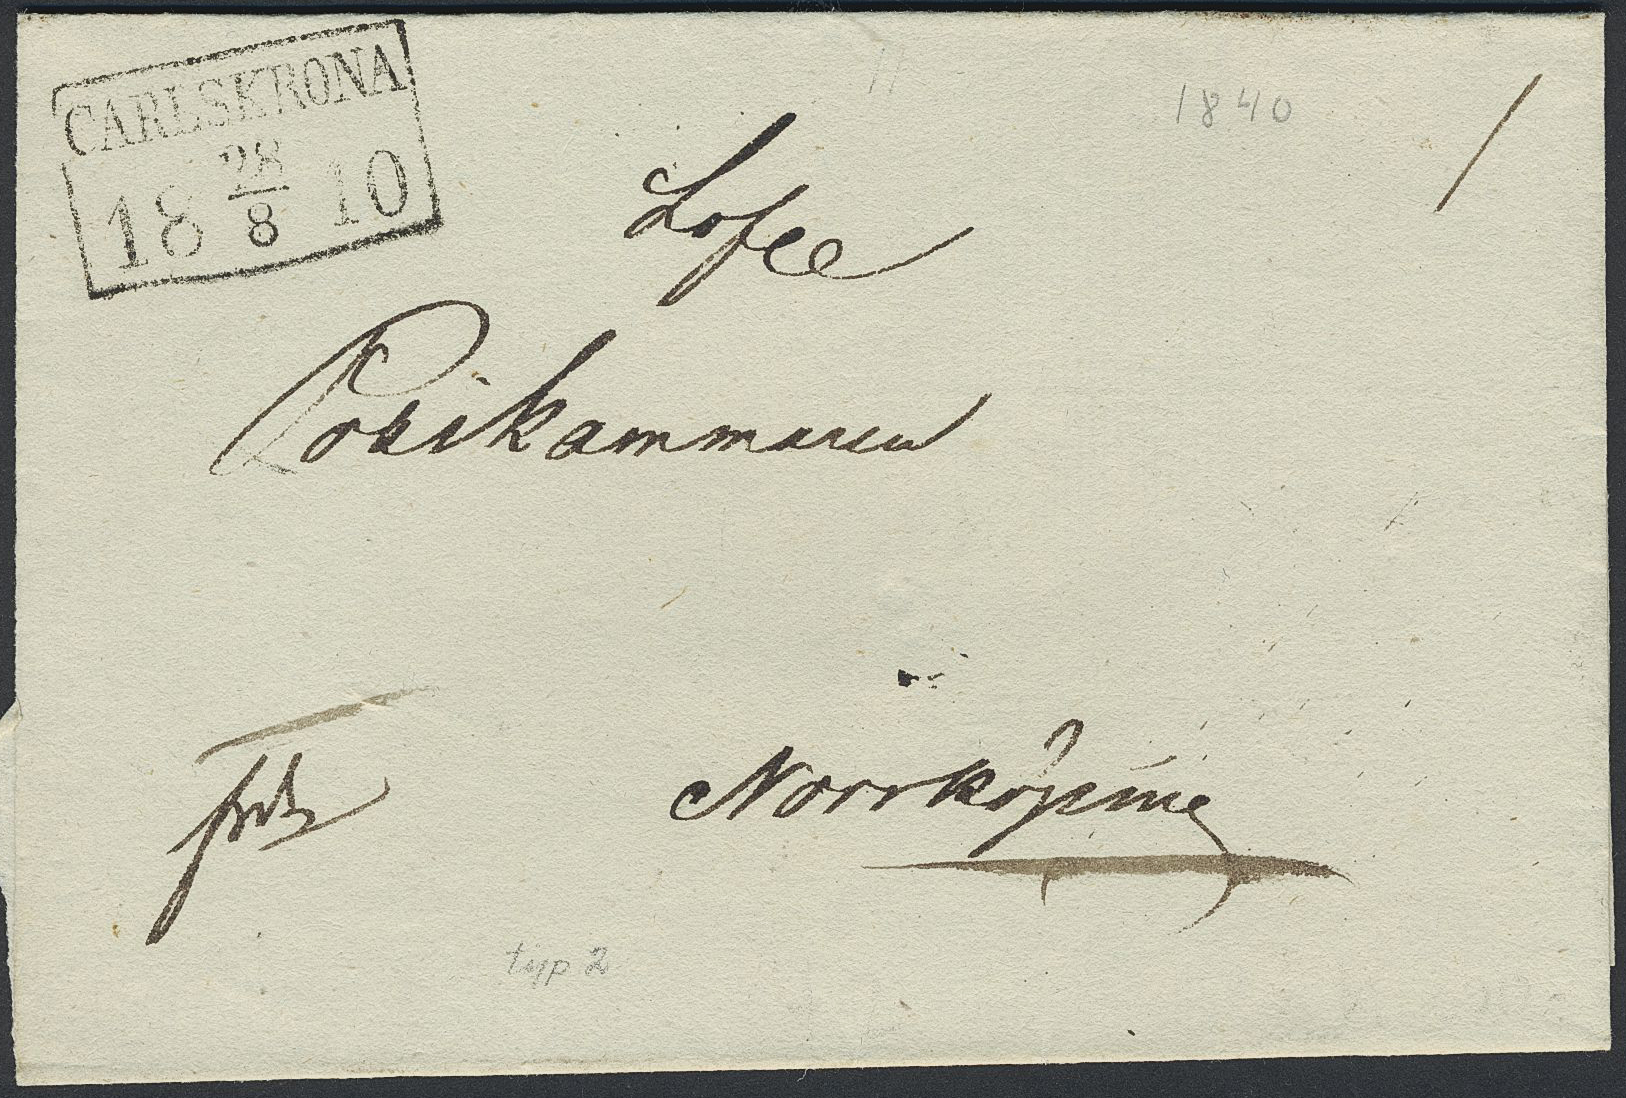 CARLSKRONA
18 28/8 10
1840
Lofl
Postkammaren
frbr
Norrköping
typ 2